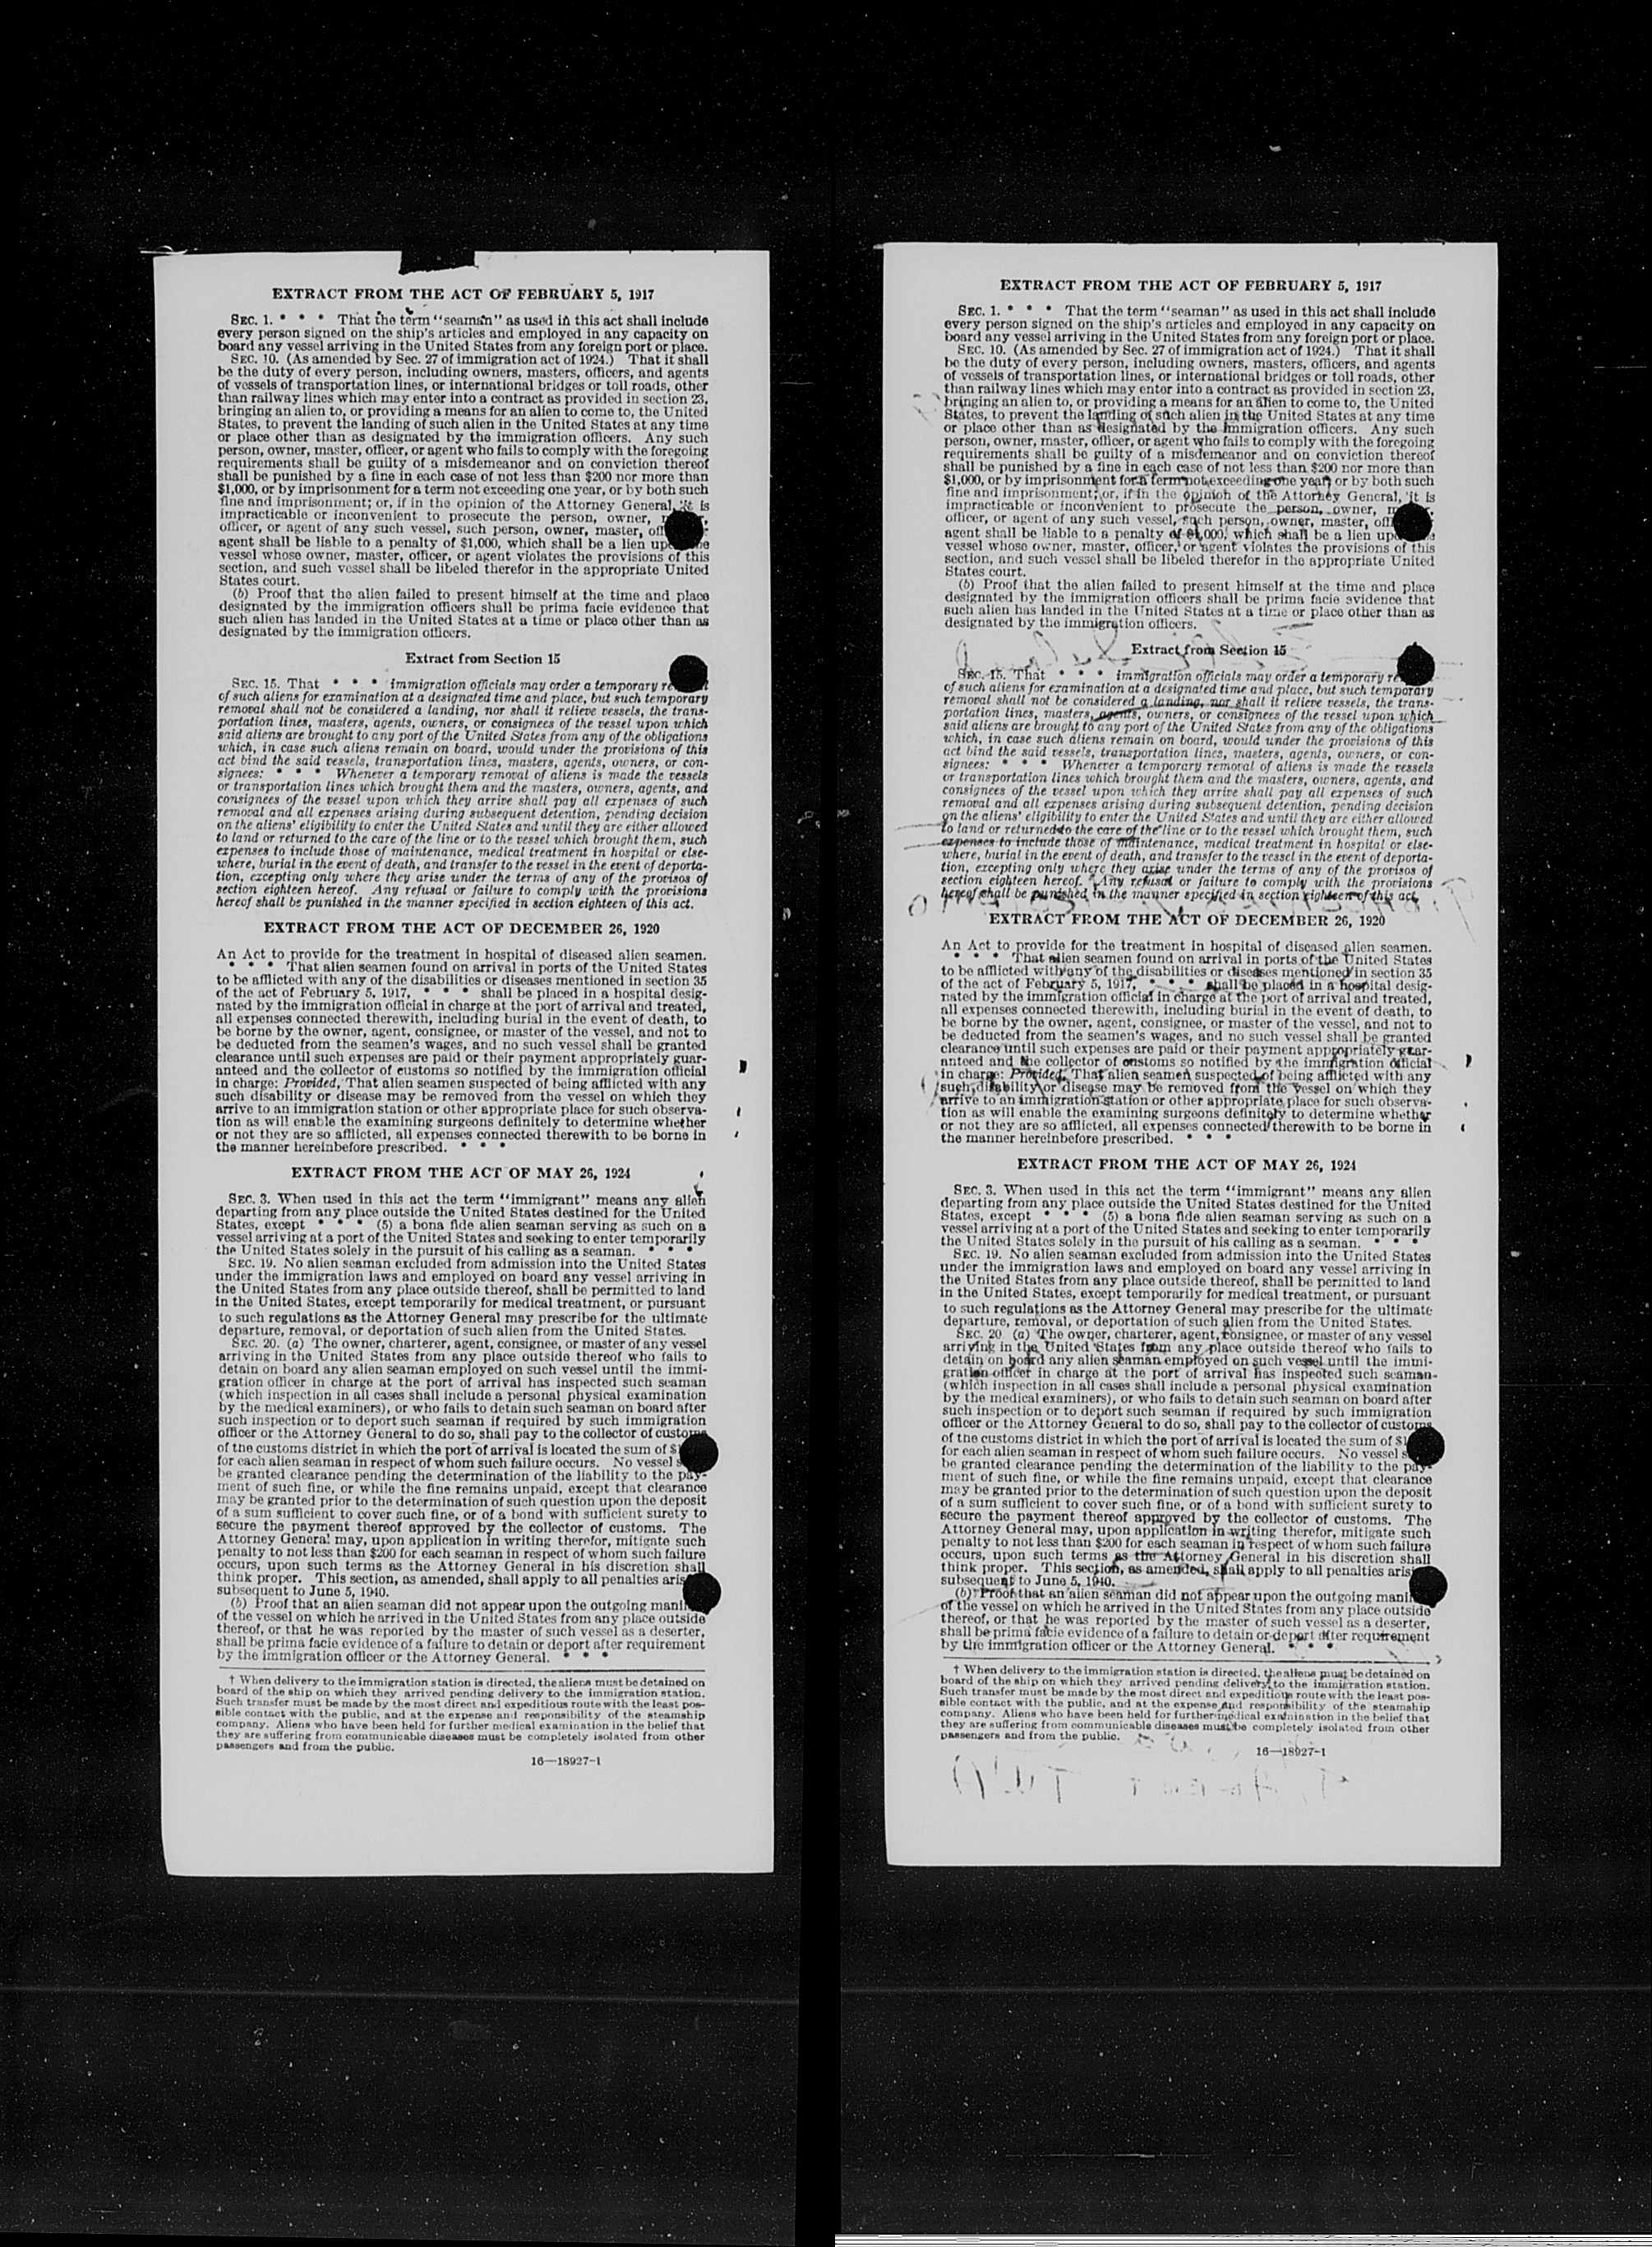 EXTRACT FROM THE ACT OF FEBRUARY 5, 1917
SEC. 1. * * * That the term "seaman" as used in this act shall include
every person signed on the ship's articles and employed in any capacity on
board any vessel arriving in the United States from any foreign port or place.
SEC. 10. (As amended by Sec. 27 of immigration act of 1924.) That it shall
be the duty of every person, including owners, masters, officers, and agents
of vessels of transportation lines, or international bridges or toll roads, other
than railway lines which may enter into a contract as provided in section 23,
bringing an alien to, or providing a means for an alien to come to, the United
States, to prevent the landing of such alien in the United States at any time
or place other than as designated by the immigration officers. Any such
person, owner, master, officer, or agent who fails to comply with the foregoing
requirements shall be guilty of a misdemeanor and on conviction thereof
shall be punished by a fine in each case of not less than $200 nor more than
$1,000, or by imprisonment for a term not exceeding one year, or by both such
fine and imprisonment; or, if in the opinion of the Attorney General, it is
impracticable or inconvenient to prosecute the person, owner,
officer, or agent of any such vessel, such person, owner, master,
agent shall be liable to a penalty of $1,000, which shall be a lien
vessel whose owner, master, officer, or agent violates the provisions of this
section, and such vessel shall be libeled therefor in the appropriate United
States court.
(b) Proof that the alien failed to present himself at the time and place
designated by the immigration officers shall be prima facie evidence that
such alien has landed in the United States at a time or place other than as
designated by the immigration officers.
Extract from Section 15
SEC. 15. That * * * immigration officials may order a temporary
of such aliens for examination at a designated time and place, but such temporary
removal shall not be considered a landing, nor shall it relieve vessels, the trans-
portation lines, masters, agents, owners, or consignees of the vessel upon which
said aliens are brought to any port of the United States from any of the obligations
which, in case such aliens remain on board, would under the provisions of this
act bind the said vessels, transportation lines, masters, agents, owners, or con-
signees: * * * Whenever a temporary removal of aliens is made the vessels
or transportation lines which brought them and the masters, owners, agents, and
consignees of the vessel upon which they arrive shall pay all expenses of such
removal and all expenses arising during subsequent detention, pending decision
on the aliens' eligibility to enter the United States and until they are either allowed
to land or returned to the care of the line or to the vessel which brought them, such
expenses to include those of maintenance, medical treatment in hospital or else-
where, burial in the event of death, and transfer to the vessel in the event of deporta-
tion, excepting only where they arise under the terms of any of the provisos of
section eighteen hereof. Any refusal or failure to comply with the provisions
hereof shall be punished in the manner specified in section eighteen of this act.
EXTRACT FROM THE ACT OF DECEMBER 26, 1920
An Act to provide for the treatment in hospital of diseased alien seamen.
* * * That alien seamen found on arrival in ports of the United States
to be afflicted with any of the disabilities or diseases mentioned in section 35
of the act of February 5, 1917, * * * shall be placed in a hospital desig-
nated by the immigration official in charge at the port of arrival and treated,
all expenses connected therewith, including burial in the event of death, to
be borne by the owner, agent, consignee, or master of the vessel, and not to
be deducted from the seamen's wages, and no such vessel shall be granted
clearance until such expenses are paid or their payment appropriately guar-
anteed and the collector of customs so notified by the immigration official
in charge: Provided, That alien seamen suspected of being afflicted with any
such disability or disease may be removed from the vessel on which they
arrive to an immigration station or other appropriate place for such observa-
tion as will enable the examining surgeons definitely to determine whether
or not they are so afflicted, all expenses connected therewith to be borne in
the manner hereinbefore prescribed. * * *
EXTRACT FROM THE ACT OF MAY 26, 1924
SEC. 3. When used in this act the term "immigrant" means any alien
departing from any place outside the United States destined for the United
States, except * * * (5) a bona fide alien seaman serving as such on a
vessel arriving at a port of the United States and seeking to enter temporarily
the United States solely in the pursuit of his calling as a seaman. * * *
SEC. 19. No alien seaman excluded from admission into the United States
under the immigration laws and employed on board any vessel arriving in
the United States from any place outside thereof, shall be permitted to land
in the United States, except temporarily for medical treatment, or pursuant
to such regulations as the Attorney General may prescribe for the ultimate
departure, removal, or deportation of such alien from the United States.
SEC. 20. (a) The owner, charterer, agent, consignee, or master of any vessel
arriving in the United States from any place outside thereof who fails to
detain on board any alien seaman employed on such vessel until the immi-
gration officer in charge at the port of arrival has inspected such seaman
(which inspection in all cases shall include a personal physical examination
by the medical examiners), or who fails to detain such seaman on board after
such inspection or to deport such seaman if required by such immigration
officer or the Attorney General to do so, shall pay to the collector of customs
of the customs district in which the port of arrival is located the sum of
for each alien seaman in respect of whom such failure occurs. No vessel
be granted clearance pending the determination of the liability to the pay-
ment of such fine, or while the fine remains unpaid, except that clearance
may be granted prior to the determination of such question upon the deposit
of a sum sufficient to cover such fine, or of a bond with sufficient surety to
secure the payment thereof approved by the collector of customs. The
Attorney General may, upon application in writing therefor, mitigate such
penalty to not less than $200 for each seaman in respect of whom such failure
occurs, upon such terms as the Attorney General in his discretion shall
think proper. This section, as amended, shall apply to all penalties
subsequent to June 5, 1940.
(b) Proof that an alien seaman did not appear upon the outgoing
of the vessel on which he arrived in the United States from any place outside
thereof, or that he was reported by the master of such vessel as a deserter,
shall be prima facie evidence of a failure to detain or deport after requirement
by the immigration officer or the Attorney General. * * *
† When delivery to the immigration station is directed, the aliens must be detained on
board of the ship on which they arrived pending delivery to the immigration station.
Such transfer must be made by the most direct and expeditious route with the least pos-
sible contact with the public, and at the expense and responsibility of the steamship
company. Aliens who have been held for further medical examination in the belief that
they are suffering from communicable diseases must be completely isolated from other
passengers and from the public.
16—18927-1
EXTRACT FROM THE ACT OF FEBRUARY 5, 1917
SEC. 1. * * * That the term "seaman" as used in this act shall include
every person signed on the ship's articles and employed in any capacity on
board any vessel arriving in the United States from any foreign port or place.
SEC. 10. (As amended by Sec. 27 of immigration act of 1924.) That it shall
be the duty of every person, including owners, masters, officers, and agents
of vessels of transportation lines, or international bridges or toll roads, other
than railway lines which may enter into a contract as provided in section 23,
bringing an alien to, or providing a means for an alien to come to, the United
States, to prevent the landing of such alien in the United States at any time
or place other than as designated by the immigration officers. Any such
person, owner, master, officer, or agent who fails to comply with the foregoing
requirements shall be guilty of a misdemeanor and on conviction thereof
shall be punished by a fine in each case of not less than $200 nor more than
$1,000, or by imprisonment for a term not exceeding one year, or by both such
fine and imprisonment; or, if in the opinion of the Attorney General, it is
impracticable or inconvenient to prosecute the person, owner,
officer, or agent of any such vessel, such person, owner, master,
agent shall be liable to a penalty of $1,000, which shall be a lien
vessel whose owner, master, officer, or agent violates the provisions of this
section, and such vessel shall be libeled therefor in the appropriate United
States court.
(b) Proof that the alien failed to present himself at the time and place
designated by the immigration officers shall be prima facie evidence that
such alien has landed in the United States at a time or place other than as
designated by the immigration officers.
Extract from Section 15
SEC. 15. That * * * immigration officials may order a temporary
of such aliens for examination at a designated time and place, but such temporary
removal shall not be considered a landing, nor shall it relieve vessels, the trans-
portation lines, masters, agents, owners, or consignees of the vessel upon which
said aliens are brought to any port of the United States from any of the obligations
which, in case such aliens remain on board, would under the provisions of this
act bind the said vessels, transportation lines, masters, agents, owners, or con-
signees: * * * Whenever a temporary removal of aliens is made the vessels
or transportation lines which brought them and the masters, owners, agents, and
consignees of the vessel upon which they arrive shall pay all expenses of such
removal and all expenses arising during subsequent detention, pending decision
on the aliens' eligibility to enter the United States and until they are either allowed
to land or returned to the care of the line or to the vessel which brought them, such
expenses to include those of maintenance, medical treatment in hospital or else-
where, burial in the event of death, and transfer to the vessel in the event of deporta-
tion, excepting only where they arise under the terms of any of the provisos of
section eighteen hereof. Any refusal or failure to comply with the provisions
hereof shall be punished in the manner specified in section eighteen of this act.
EXTRACT FROM THE ACT OF DECEMBER 26, 1920
An Act to provide for the treatment in hospital of diseased alien seamen.
* * * That alien seamen found on arrival in ports of the United States
to be afflicted with any of the disabilities or diseases mentioned in section 35
of the act of February 5, 1917, * * * shall be placed in a hospital desig-
nated by the immigration official in charge at the port of arrival and treated,
all expenses connected therewith, including burial in the event of death, to
be borne by the owner, agent, consignee, or master of the vessel, and not to
be deducted from the seamen's wages, and no such vessel shall be granted
clearance until such expenses are paid or their payment appropriately guar-
anteed and the collector of customs so notified by the immigration official
in charge: Provided, That alien seamen suspected of being afflicted with any
such disability or disease may be removed from the vessel on which they
arrive to an immigration station or other appropriate place for such observa-
tion as will enable the examining surgeons definitely to determine whether
or not they are so afflicted, all expenses connected therewith to be borne in
the manner hereinbefore prescribed. * * *
EXTRACT FROM THE ACT OF MAY 26, 1924
SEC. 3. When used in this act the term "immigrant" means any alien
departing from any place outside the United States destined for the United
States, except * * * (5) a bona fide alien seaman serving as such on a
vessel arriving at a port of the United States and seeking to enter temporarily
the United States solely in the pursuit of his calling as a seaman. * * *
SEC. 19. No alien seaman excluded from admission into the United States
under the immigration laws and employed on board any vessel arriving in
the United States from any place outside thereof, shall be permitted to land
in the United States, except temporarily for medical treatment, or pursuant
to such regulations as the Attorney General may prescribe for the ultimate
departure, removal, or deportation of such alien from the United States.
SEC. 20 (a) The owner, charterer, agent, consignee, or master of any vessel
arriving in the United States from any place outside thereof who fails to
detain on board any alien seaman employed on such vessel until the immi-
gration officer in charge at the port of arrival has inspected such seaman
(which inspection in all cases shall include a personal physical examination
by the medical examiners), or who fails to detain such seaman on board after
such inspection or to deport such seaman if required by such immigration
officer or the Attorney General to do so, shall pay to the collector of customs
of the customs district in which the port of arrival is located the sum of
for each alien seaman in respect of whom such failure occurs. No vessel
be granted clearance pending the determination of the liability to the pay-
ment of such fine, or while the fine remains unpaid, except that clearance
may be granted prior to the determination of such question upon the deposit
of a sum sufficient to cover such fine, or of a bond with sufficient surety to
secure the payment thereof approved by the collector of customs. The
Attorney General may, upon application in writing therefor, mitigate such
penalty to not less than $200 for each seaman in respect of whom such failure
occurs, upon such terms as the Attorney General in his discretion shall
think proper. This section, as amended, shall apply to all penalties
subsequent to June 5, 1940.
(b) Proof that an alien seaman did not appear upon the outgoing
of the vessel on which he arrived in the United States from any place outside
thereof, or that he was reported by the master of such vessel as a deserter,
shall be prima facie evidence of a failure to detain or deport after requirement
by the immigration officer or the Attorney General. * * *
† When delivery to the immigration station is directed, the aliens must be detained on
board of the ship on which they arrived pending delivery to the immigration station.
Such transfer must be made by the most direct and expeditious route with the least pos-
sible contact with the public, and at the expense and responsibility of the steamship
company. Aliens who have been held for further medical examination in the belief that
they are suffering from communicable diseases must be completely isolated from other
passengers and from the public.
16—18927-1